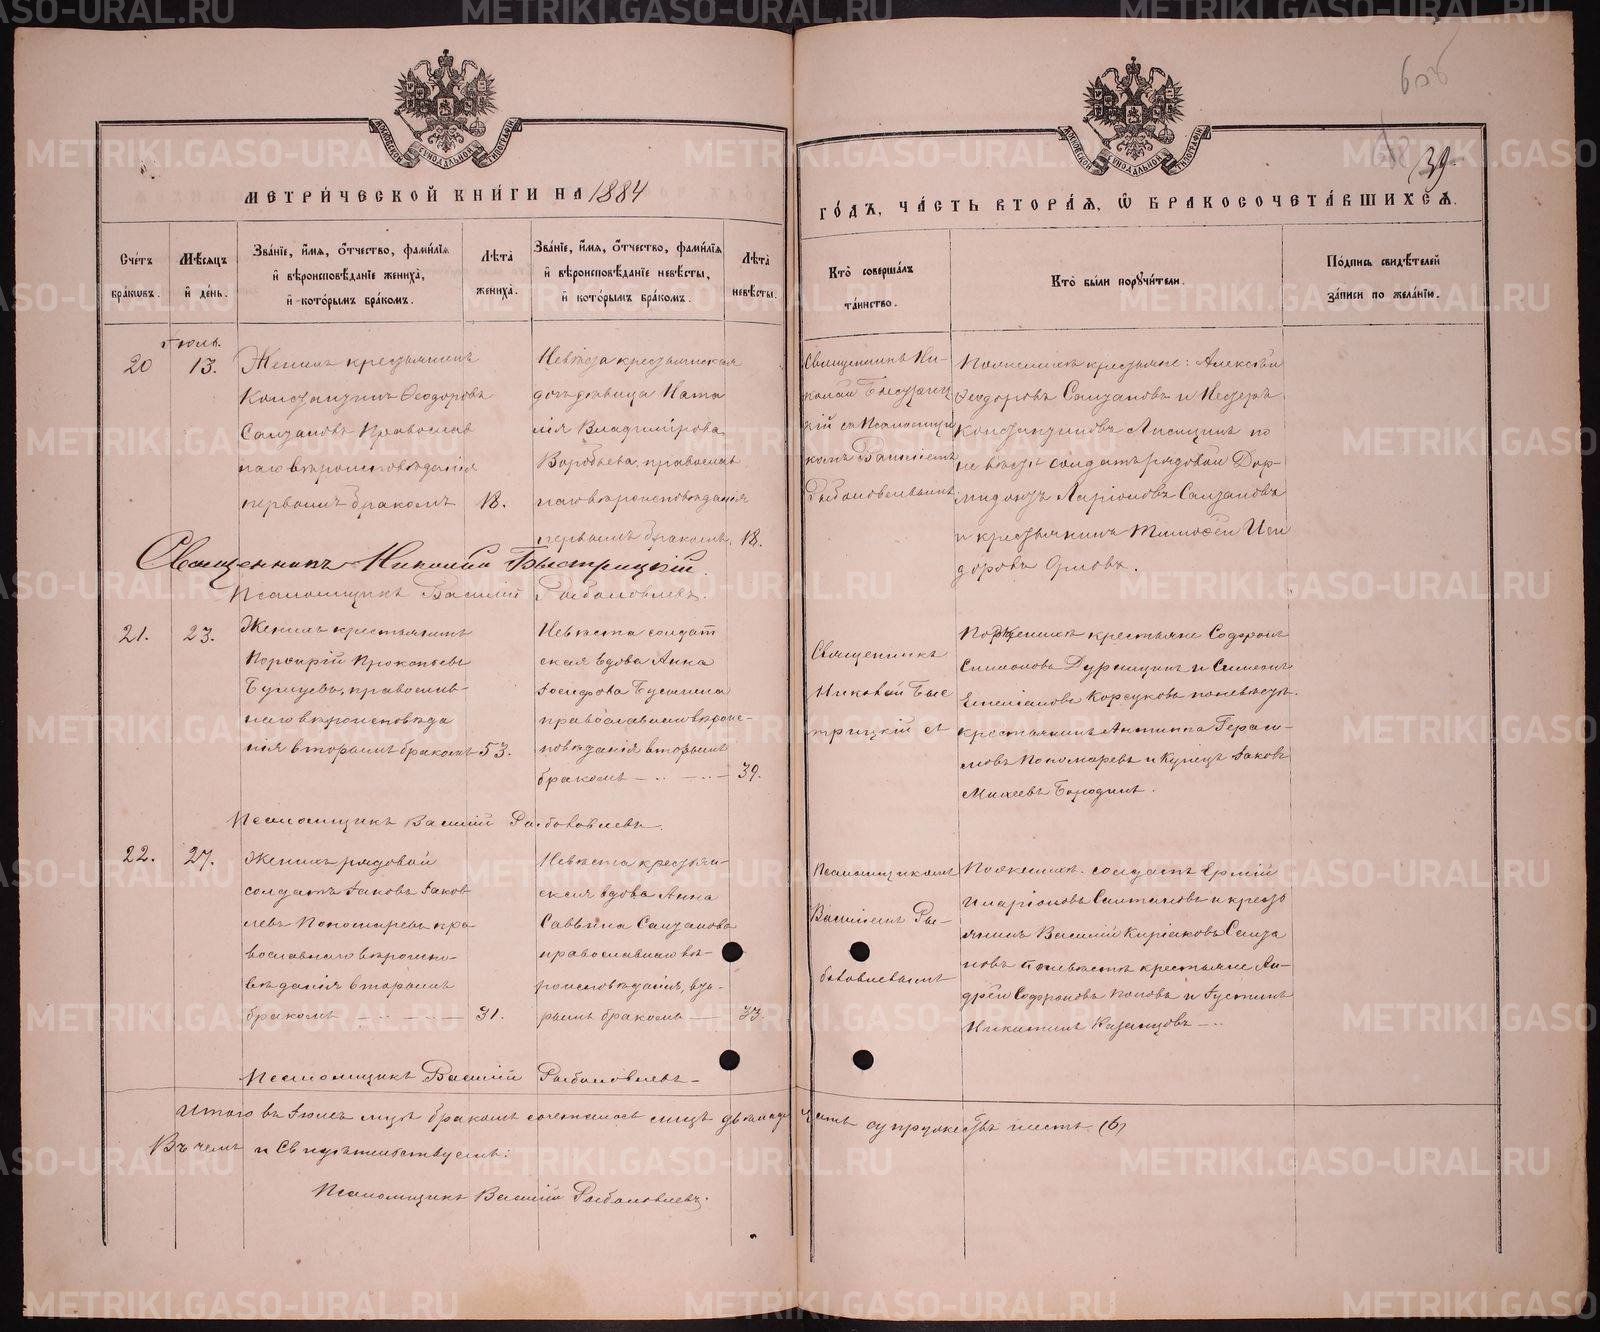 МЕТРИ́ЧЕСКОЙ КНИ́ГИ НА 1884
ГО́ДЪ, ЧА́СТЬ ВТОРА́Я, Ѿ БРАКОСОЧЕТА́ВШИХСЯ.
39
Сче́тъ бра́ковъ.
Мѣ́сяцъ и де́нь.
Зва́нїе, и́мя, о́тчество, фами́лїя и вѣроисповѣ́данїе жениха́, и кото́рымъ бра́комъ.
Лѣ́та жениха́.
Зва́нїе, и́мя, о́тчество, фами́лїя и вѣроисповѣ́данїе невѣ́сты, и кото́рымъ бра́комъ.
Лѣ́та невѣ́сты.
Кто̀ соверша́лъ та́инство.
Кто̀ бы́ли поручи́тели.
По́дпись свидѣ́телей за́писи по жела́нїю.
Іюль.
20
13.
Женихъ крестьянинъ
Константинъ Ѳеодоровъ
Салтановъ Православ
наго вѣроисповѣданія
первымъ бракомъ
18.
Невѣста крестьянская
дочь дѣвица Ната
лія Владимірова
Воробьева, православ
наго вѣроисповѣданія
первымъ бракомъ.
18.
Священникъ Ни-
колай Быстриц
кій съ Псаломщи
комъ Василіемъ
Рыболовлевымъ
По женихѣ крестьяне: Алексѣй
Ѳеодоровъ Салтановъ и Несторъ
Константиновъ Лисицинъ по
невѣстѣ солдатъ рядовой Дор-
мидонтъ Ларіоновъ Салтановъ
и крестьянинъ Тимоѳей Иси
доровъ Орловъ.
Священникъ Николай Быстрицкій.
Псаломщикъ Василій Рыболовлевъ.
21.
23.
Женихъ крестьянинъ
Порфирій Прокопьевъ
православ-
наго вѣроисповѣда
нія вторымъ бракомъ
53.
Невѣста солдат
ская вдова Анна
Іосифова Бусыгина
православнаго вѣроис-
повѣданія вторымъ
бракомъ
39.
Священникъ
Николай Быс
трицкій съ
По женихѣ крестьяне Софронъ
Симоновъ и Симеонъ
Емеліановъ Корсуковъ по невѣстѣ
крестьянинъ Антипа Гераси-
мовъ Пономаревъ и Купецъ Іаковъ
Михеевъ Бородинъ.
Псаломщикъ Василій Рыболовлевъ.
22.
27.
Женихъ рядовой
солдатъ Іаковъ Іаков
левъ Пономаревъ пра
вославнаго вѣроиспо-
вѣданія вторымъ
бракомъ
31.
Невѣста крестьян-
ская вдова Анна
Саввина Салтанова
православнаго вѣ-
роисповѣданія, вто-
рымъ бракомъ
33.
Псаломщикомъ
Василіемъ Ры-
боловлевымъ
По женихѣ солдатъ Ермій
Иларіоновъ Салтановъ и кресть
янинъ Василій Киріаковъ Салта
новъ по невѣстѣ крестьяне Ан-
дрей Софроновъ Поповъ и Іустинъ
Никитинъ Казанцовъ
Псаломщикъ Василій Рыболовлевъ
Итого въ Іюлѣ мцѣ бракомъ сочеталось лицъ двѣнадцать супружествъ шесть (6)
Въ чемъ и Свидѣтельствуемъ:
Псаломщикъ Василій Рыболовлевъ.
МОСКОВСКОЙ СУНОДАЛЬНОЙ ТИПОГРАФІИ
МОСКОВСКОЙ СУНОДАЛЬНОЙ ТИПОГРАФІИ
METRIKI.GASO-URAL.RU